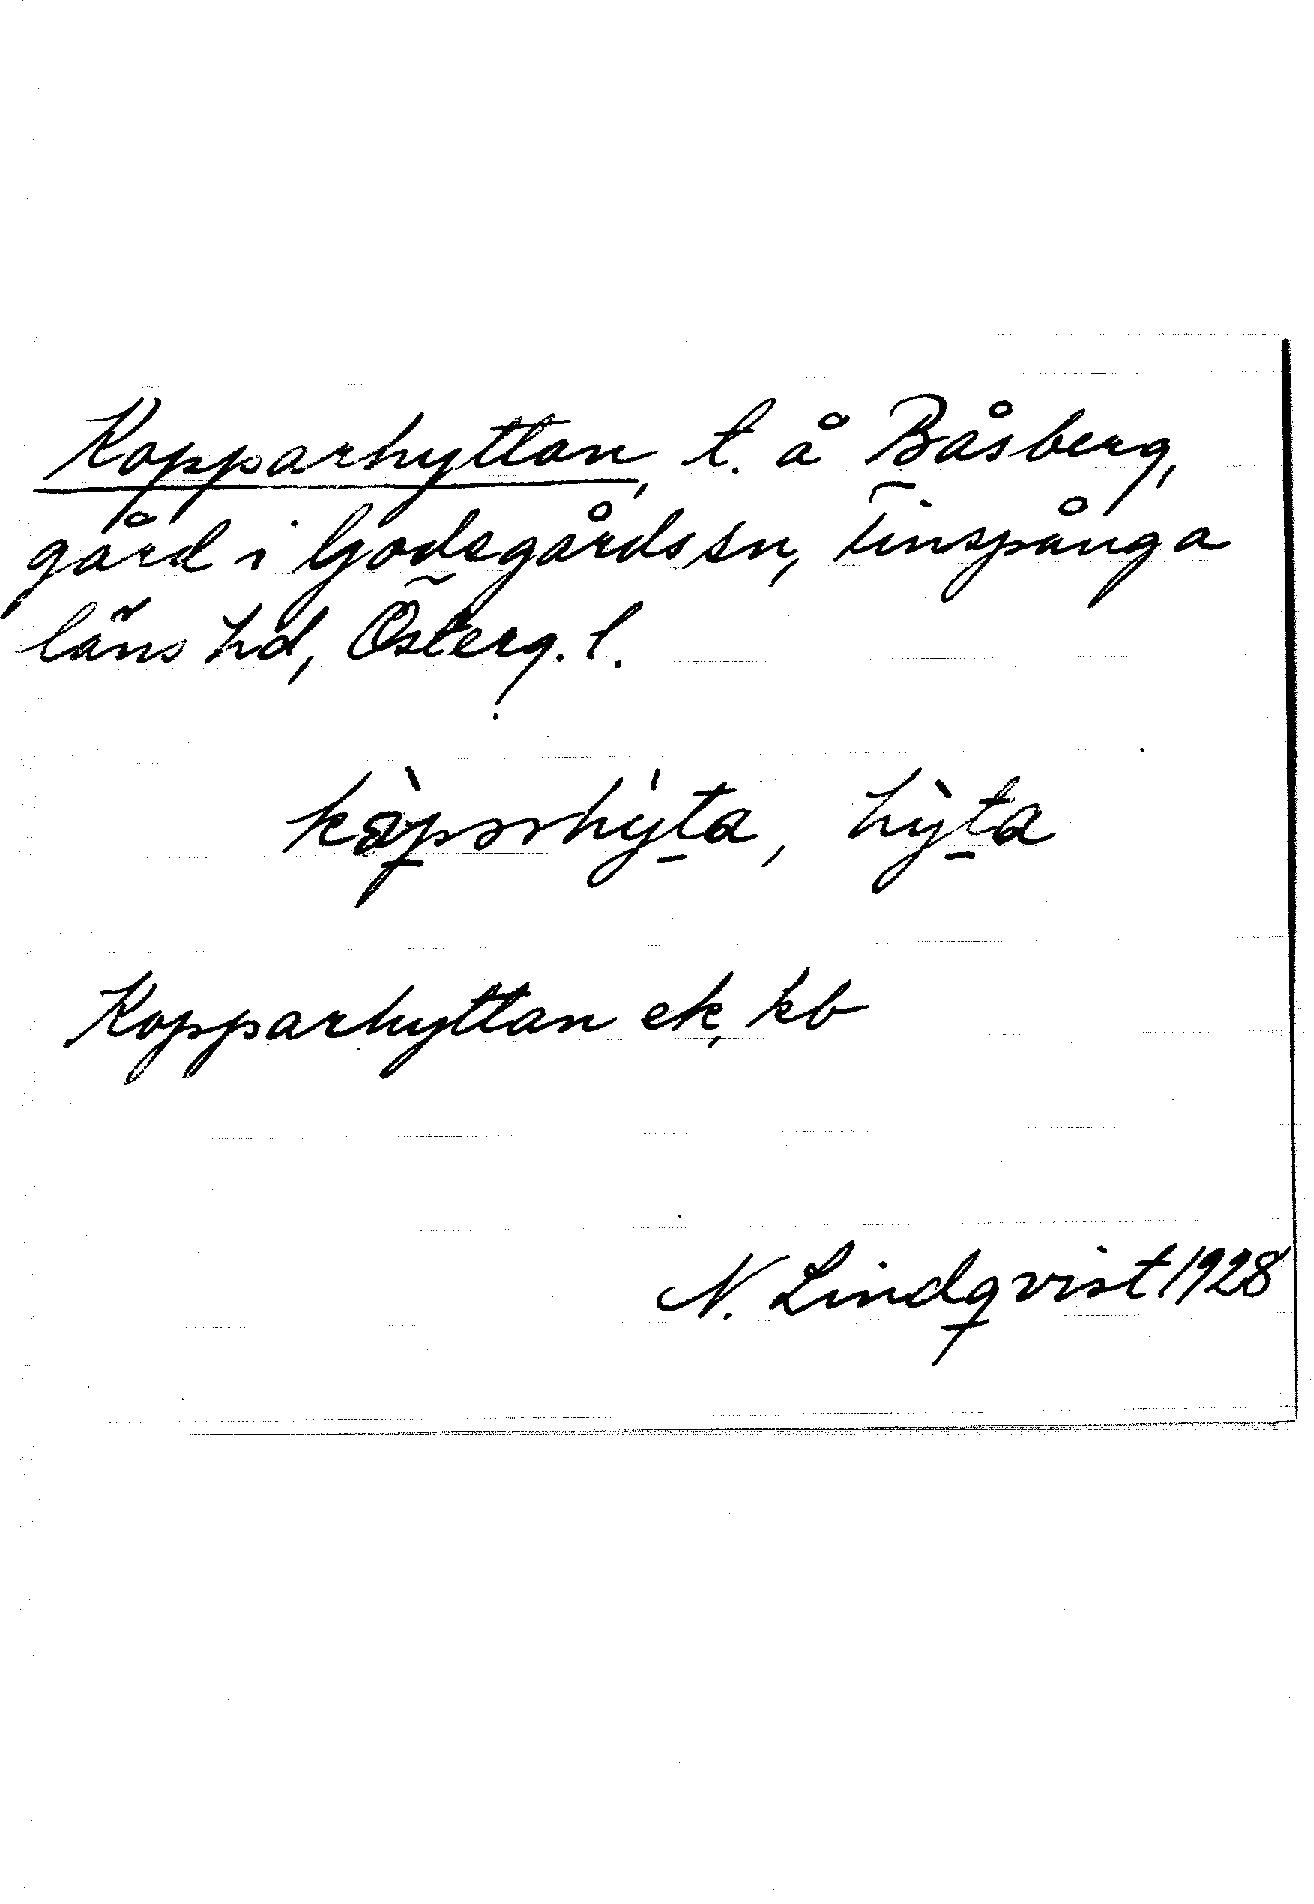 Kopparhyttan, t. å Båsberg,
gård i Godegårds sn, Finspånga
läns hd, Österg. l.
hỳta
Kopparhyttan ek, kb
N. Lindqvist 1928